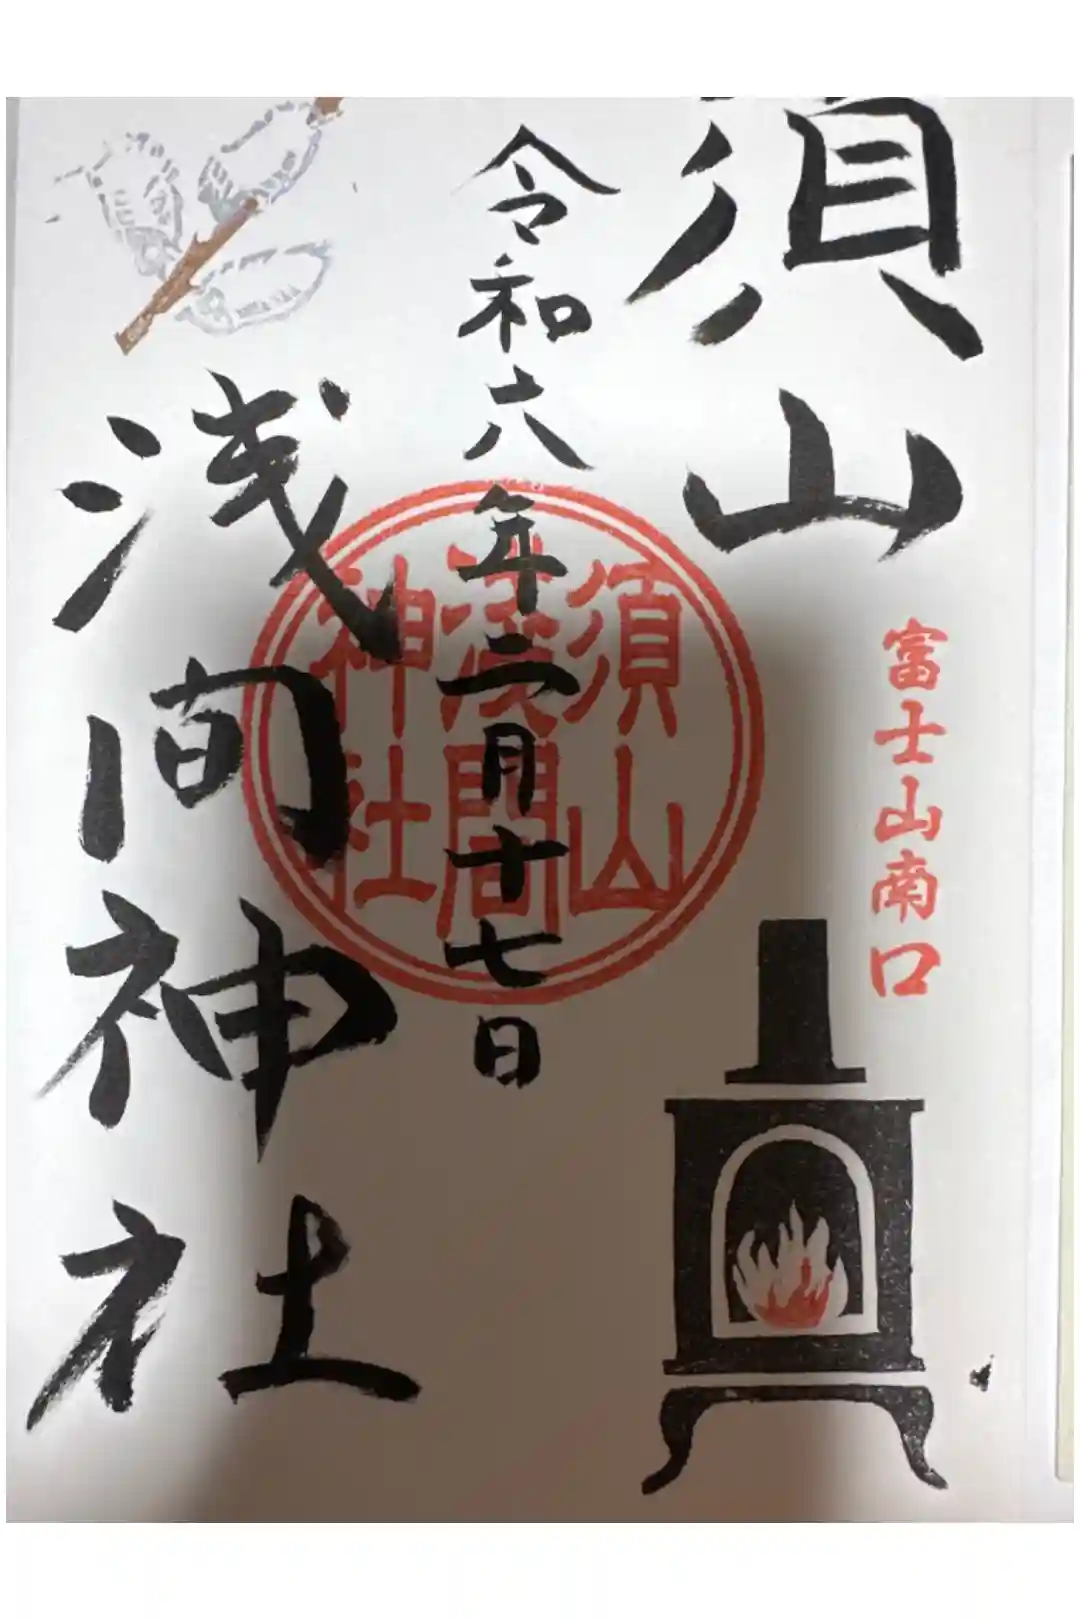 須山
富士山南口
令和六年二月十七日
須山
淺間
神社
浅間神社